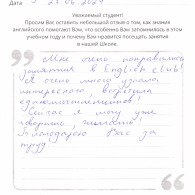 Дата 21.06.2024
Уважаемый студент!
Просим Вас оставить небольшой отзыв о том, как знания
английского помогают Вам, что особенно Вам запомнилось в этом
учебном году и почему Вам нравится посещать занятия
в нашей Школе.
Мне очень понравились
занятия в English club!
Я очень много узнала
интересного, вор
единомышленников!
Сейчас я могу уже
говорить, читать!
Благодарю Вас за
труд